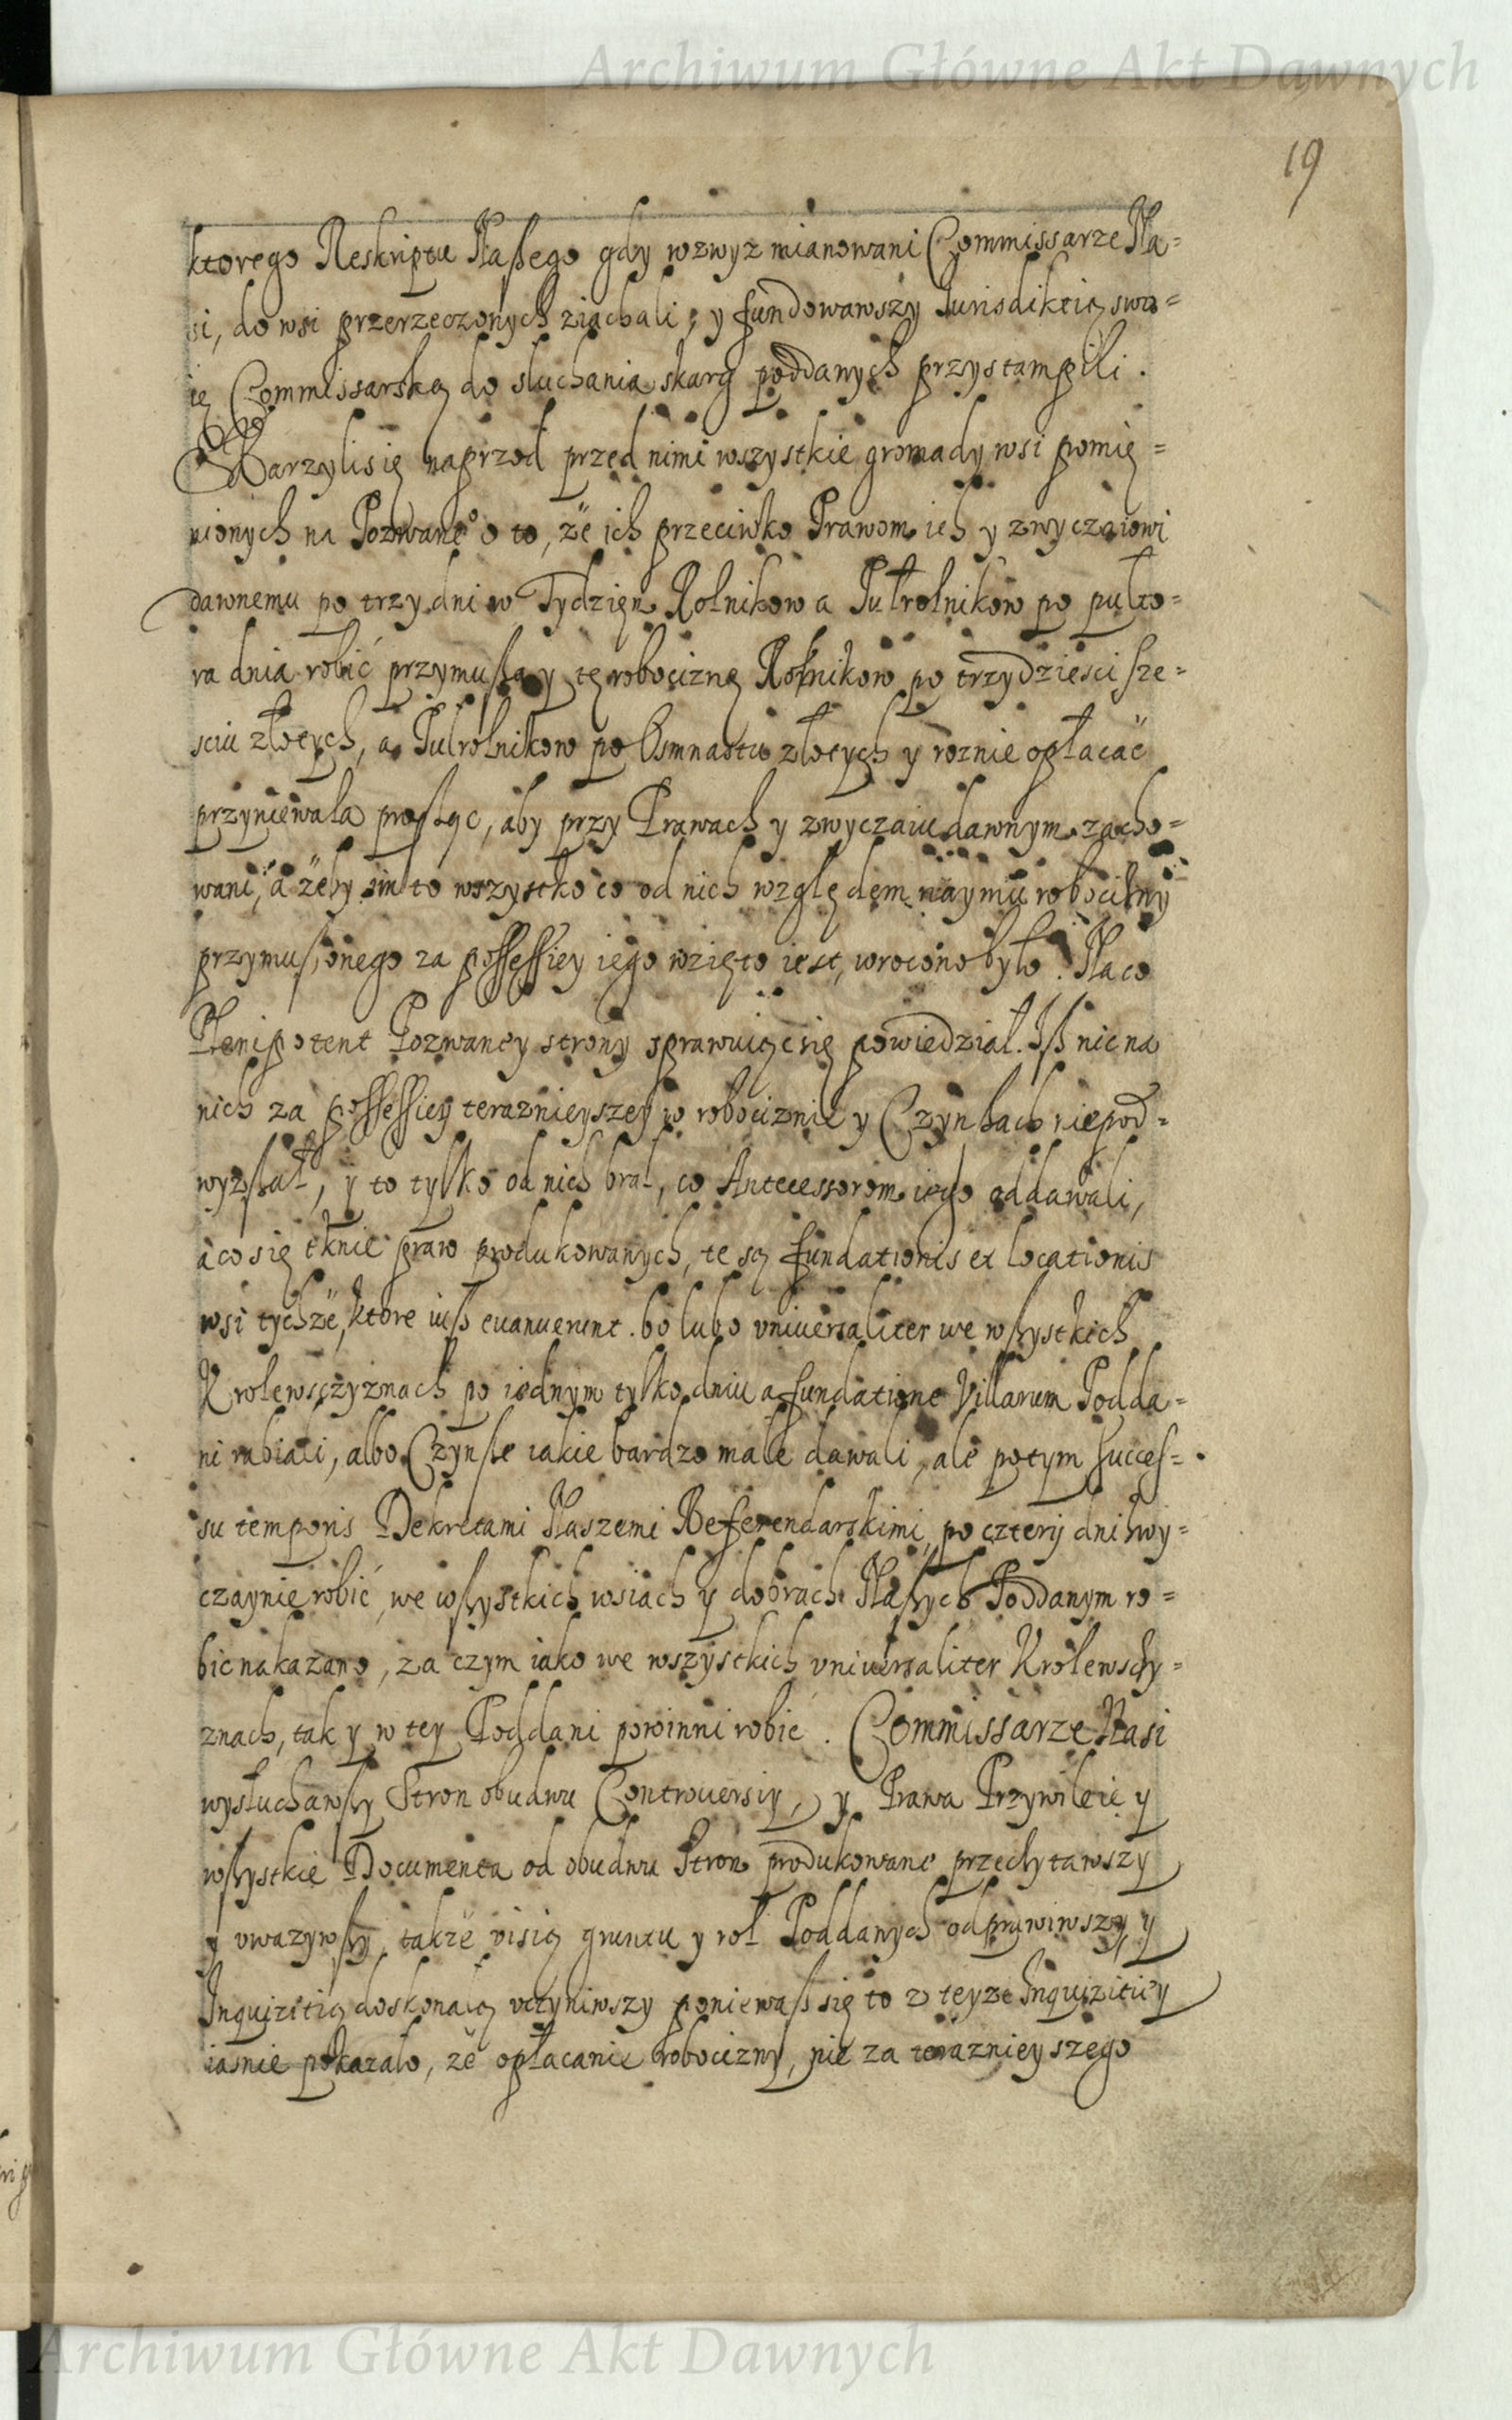 Archiwum Główne Akt Dawnych
19
ktorego Reskriptu Naßego gdy wzwyz mianowani Commissarze Na=
si, do wsi przerzeczonych ziachali, y fundowawszy Jurisdiktią swo=
ię Commissarską do sluchania skarg poddanych przystąmpili.
Skarzyli się naprzod przed nimi wszystkie gromady wsi pomię=
nionych na Pozwane° o to, że ich przeciwko Prawom ich y zwyczaiowi
dawnemu po trzy dni w Tydzięn Rolnikow a Pułrolnikow po pułto=
ra dnia robić przymußa y tę robociznę Rolnikow po trzydziesci sze=
sciu złotych, a Pulrolnikow po Osmnastu złotych y roznie opłacać
przyniewala proßąc, aby przy Prawach y zwyczaiu dawnym zacho=
wani, a żeby im to wszystko co od nich względem naymu robocizny
przymußonego za possessiey iego wzięto iest, wrocono było. Na co
Plenipotent Pozwaney strony sprawuiąc się powiedział. Iß nic na
nich za possessiey teraznieyszey w robociznie y Czynßach niepod=
wyzßał, y to tylko od nich brał, co Antecessorom iego oddawali,
a co się tknie praw produkowanych, te są fundationis et locationis
wsi tychże, ktore iuß evanuerunt. bo lubo vniuersaliter we wßystkich
Krolewsczyznach po iednym tylko dniu a fundatione Villarum Podda=
ni rabiali, albo Czynße iakie bardzo małe dawali, ale potym succes=
su temporis Dekretami Naszemi Referendarskimi, po cztery dni zwy=
czaynie robić, we wßystkich wsiach y dobrach Naßych Poddanym ro=
bic nakazano, za czym iako we wszystkich vniuersaliter Krolewsczy=
znach, tak y w tey Poddani powinni robić. Commissarze Nasi
wysłuchawßy Stron obudwu Controuersiy, y Prawa Przywileie y
wßystkie Documenta od obudwu Stron produkowane przeczytawszy
y vwazywßy, także visią gruntu y rol Poddanych odprawiwszy, y
Inquizitią doskonałą vczyniwszy poniewaß się to z teyze Inquizitiey
iasnie pokazało, że opłacanie robocizny, nie za teraznieyszego
Archiwum Główne Akt Dawnych